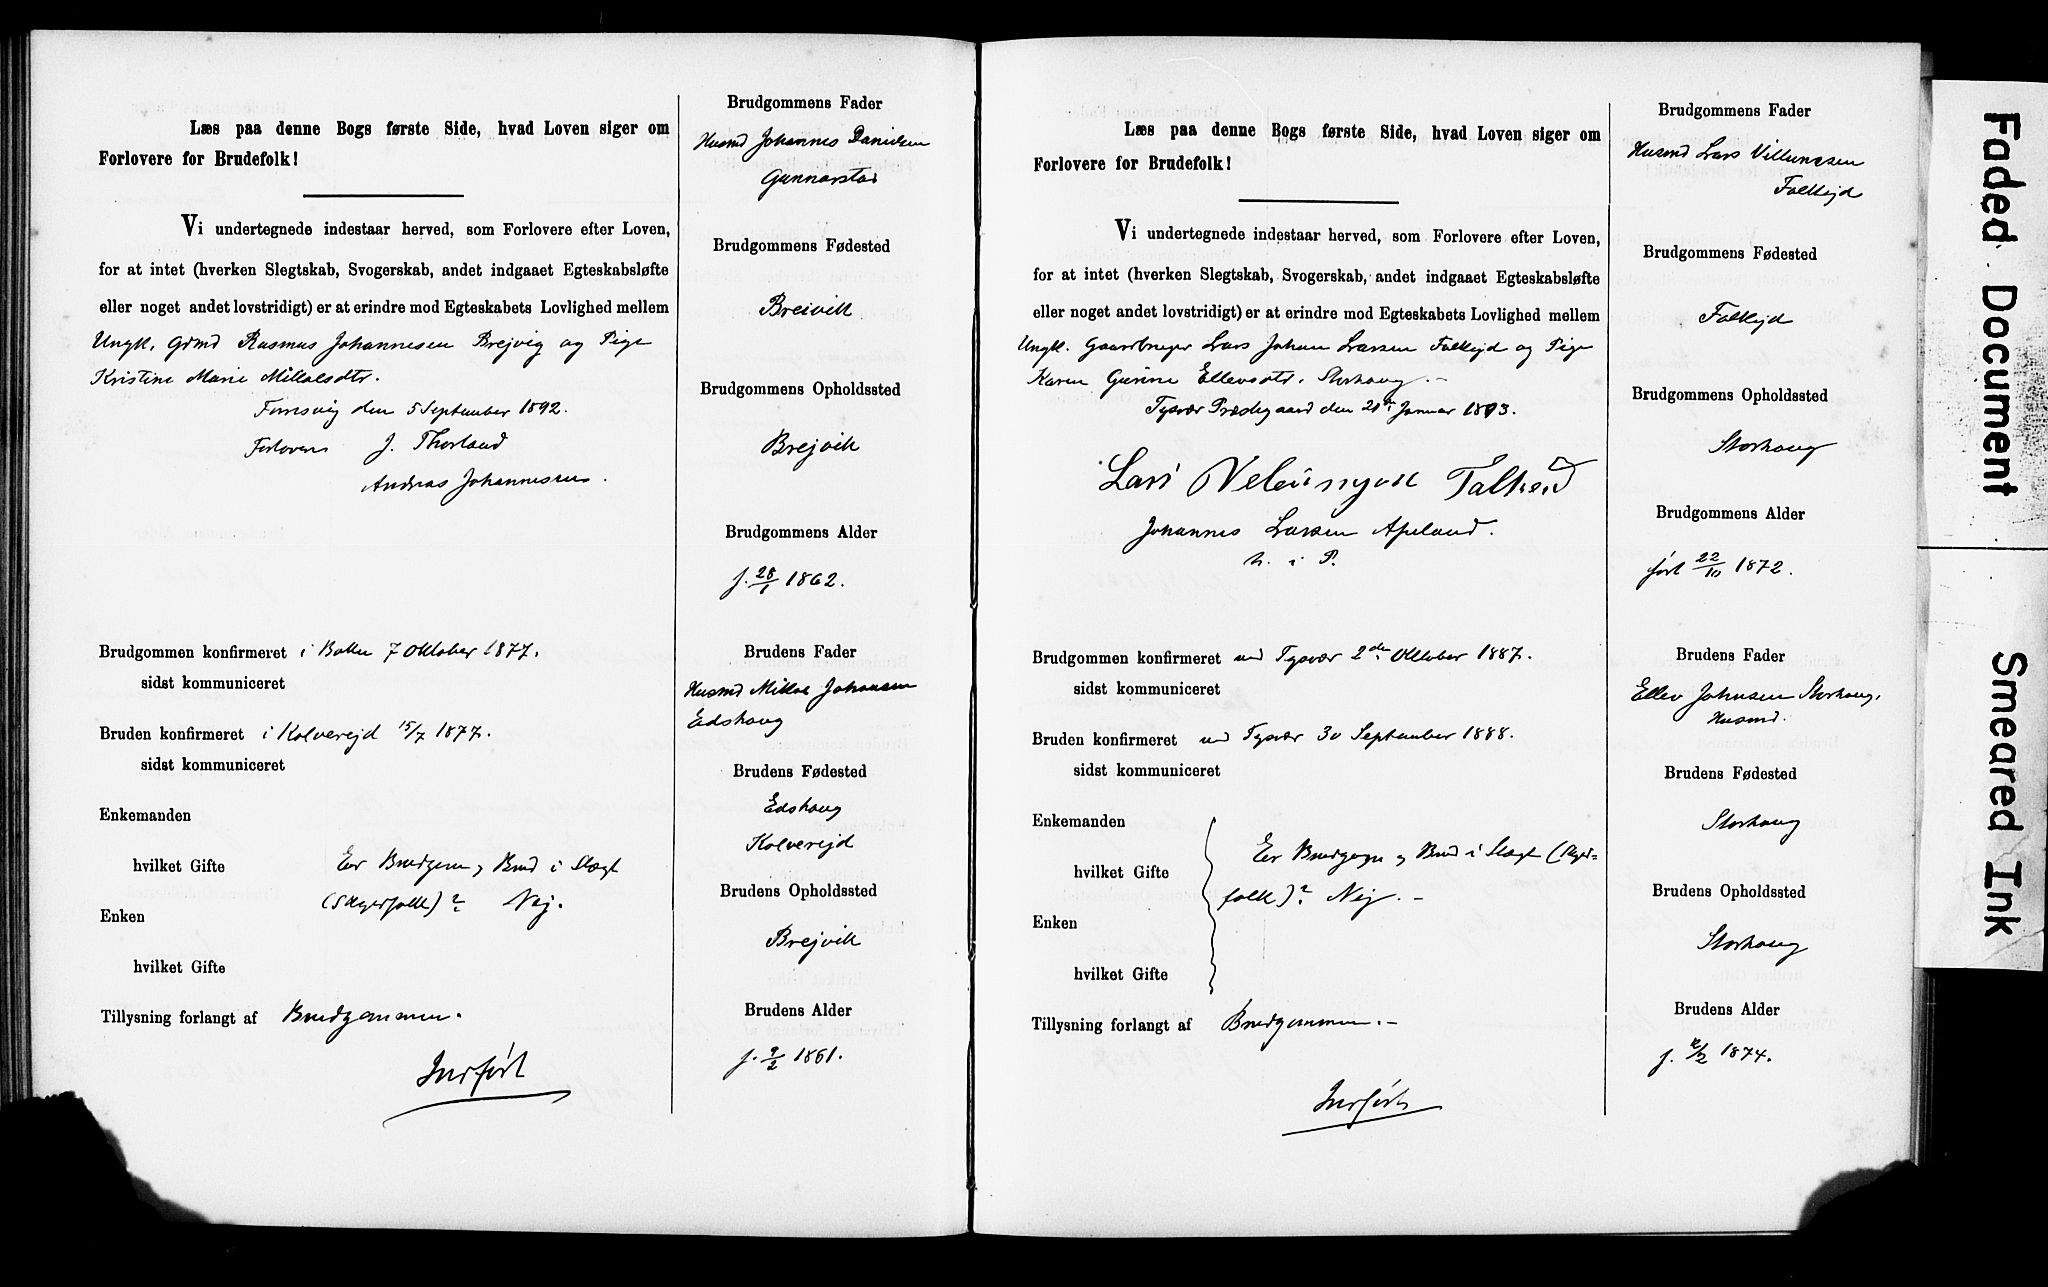 Læs paa denne Bogs første Side, hvad Loven siger om
Forlovere for Brudefolk!
Vi undertegnede indestaar herved, som Forlovere efter Loven,
for at intet (hverken Slegtskab, Svogerskab, andet indgaaet Egteskabsløfte
eller noget andet lovstridigt) er at erindre mod Egteskabets Lovlighed mellem
Ungk. Grmd Rasmus Johannesen Brejvig og Pige
Kristine Marie Mikkalsdtr.
den 5 September 1892.
Forlovere J. Thorland
Andreas Johannessen.
Brudgommen konfirmeret i Bokn 7 Oktober 1877.
sidst kommuniceret
Bruden konfirmeret i Kolverejd 15/7 1877.
sidst kommuniceret
Enkemanden
hvilket Gifte
Er Brudgom og Brud i Slægt
(Skyldfolk)? Nej.
Enken
hvilket Gifte
Tillysning forlangt af Brudgommen.
Indført
Brudgommens Fader
Husmd Johannes Danielsen
Gunnarstad
Brudgommens Fødested
Breivik
Brudgommens Opholdssted
Brejvik
Brudgommens Alder
f. 28/1 1862.
Brudens Fader
Husmd Mikkal Johansen
Edshaug
Brudens Fødested
Edshaug
Kolverejd
Brudens Opholdssted
Brejvik
Brudens Alder
f. 9/2 1861.
Læs paa denne Bogs første Side, hvad Loven siger om
Forlovere for Brudefolk!
Vi undertegnede indestaar herved, som Forlovere efter Loven,
for at intet (hverken Slegtskab, Svogerskab, andet indgaaet Egteskabsløfte
eller noget andet lovstridigt) er at erindre mod Egteskabets Lovlighed mellem
Ungk. Gaardbruger Lars Johan Larsen Falkejd og Pige
Karen Gurine Ellevsdtr. Storhaug.
Tysvær Præstegaard den 20de Januar 1893.
Lars Falkeid
Johannes Larsen Apeland.
m. i P.
Brudgommen konfirmeret ved Tysvær 2den Oktober 1887.
sidst kommuniceret
Bruden konfirmeret ved Tysvær 30 September 1888.
sidst kommuniceret
Enkemanden
hvilket Gifte
Er Brudgom og Brud i Slægt (Skyld=
folk)? Nej.
Enken
hvilket Gifte
Tillysning forlangt af Brudgommen.
Indført
Brudgommens Fader
Husmd Lars Villumsen
Falkejd
Brudgommens Fødested
Falkejd
Brudgommens Opholdssted
Storhaug
Brudgommens Alder
født 22/10 1872.
Brudens Fader
Ellev Johnsen Storhaug,
Husmd.
Brudens Fødested
Storhaug
Brudens Opholdssted
Storhaug
Brudens Alder
1874.
Faded Document
Smeared Ink